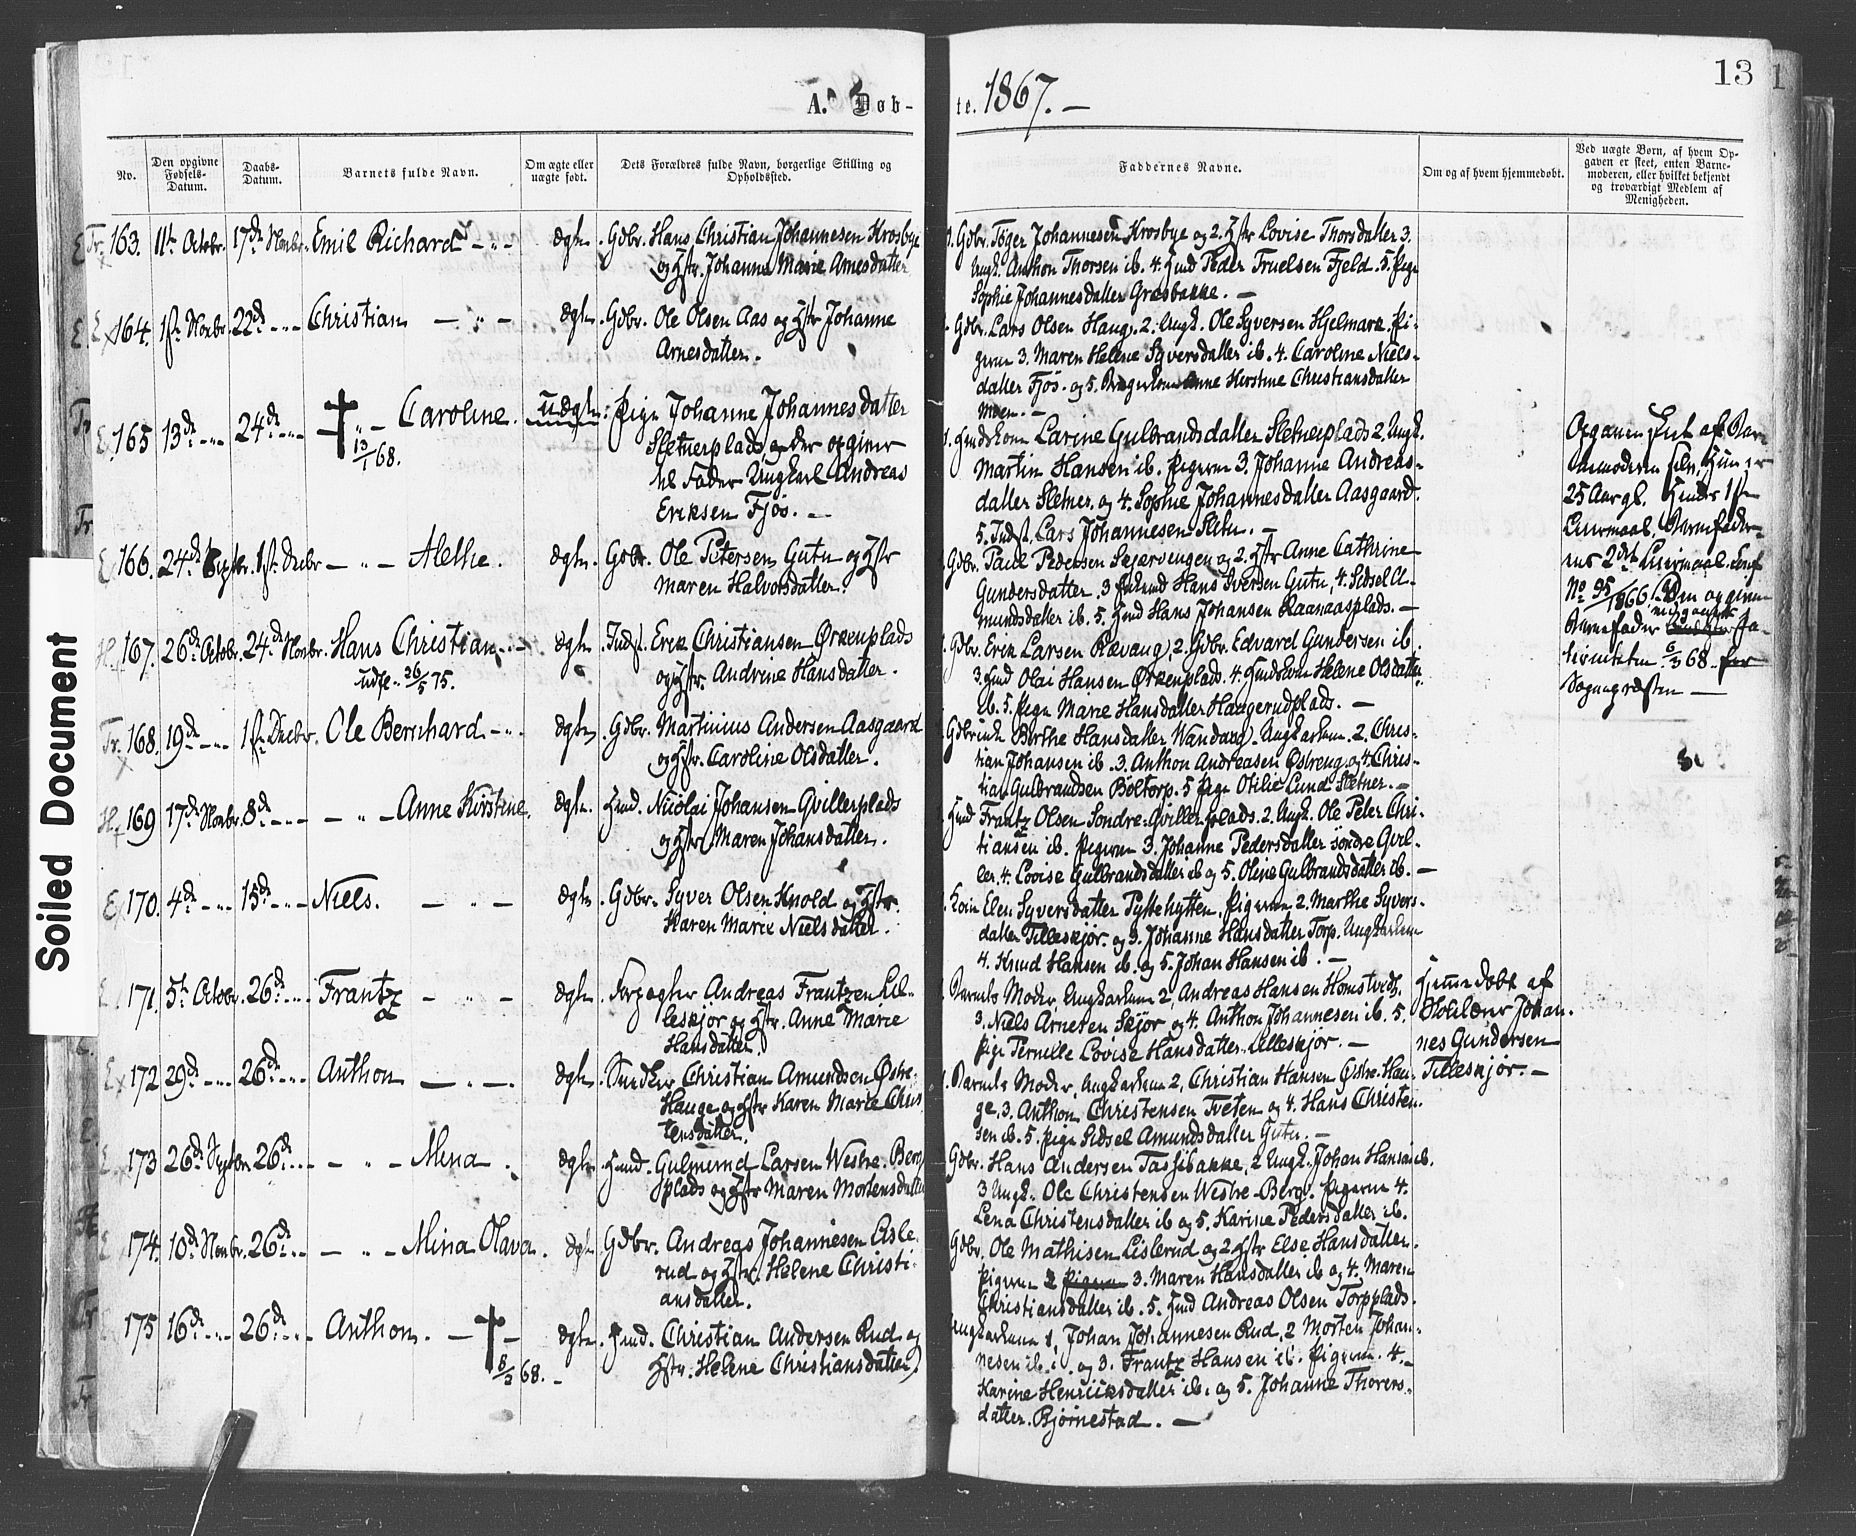 13
A. Døb-
te. 1867. —
No.
Den opgivne Fødsels-Datum.
Daabs-Datum.
Barnets fulde Navn.
Om ægte eller uægte født.
Dets Forældres fulde Navn, borgerlige Stilling og Opholdssted.
Faddernes Navne.
Om og af hvem hjemmedøbt.
Ved uægte Børn, af hvem Op-
gaven er skeet, enten Barne-
moderen, eller hvilket bekjendt
og troværdigt Medlem af
Menigheden.
Tr. 163. 11te Octobr. 17de Novbr. Emil Richard — ægte. Gdbr. Hans Christian Johannesen Krosbye
og Hstr. Johanne Marie Arnesdatter
Gdbr. Tøger Johannesen Krosbye og 2. Hstr Lovise Thorsdatter 3.
Ungk. Anthon Thorsen ib. 4. Hmd Peder Truelsen Fjeld. 5. Pige
Sophie Johannesdatter Græsbakke. —
E 164. 1ste Novbr. 22de Christian — ægte. Gdbr. Ole Olsen Aas og Hstr Johanne
Arnesdatter.
Gdbr. Lars Olsen Haug, 2. Ungk. Ole Syversen Hjelmark. Pi-
gerne 3. Maren Helene Syversdatter ib. 4. Caroline Niels-
datter Fjøs. og 5. Anne Kirstine Christiansdatter
Moen. —
E. 165 13de 24de Caroline. uægte: Pige Johanne Johannesdatter
13/1 68.
Sletnerplads, og der opgiver
til Fader Ungkarl Andreas
Eriksen Fjøs. —
Hmdskone Larine Gulbrandsdatter Sletnerplads 2. Ungk.
Martin Hansen ib. Pigerne 3. Johanne Andreas-
datter Sletner. og 4. Sophie Johannesdatter Aasgaard.
5. Indst. Lars Johannesen Sletn. —
Opgaven skeet af Bar-
nemoderen selv, Hun er
25 Aar gl. Hendes 1ste
Leiermaal. Barnefade-
rens 2det Leiermaal.
No 95/1866. Den opgivne
Barnefader
6/3 68.
Sognepræsten —
E 166. 24de Septbr. 1ste Decbr — Alethe. ægte. Gdbr. Ole Petersen Gutu og Hstr
Maren Halvorsdatter.
Gdbr. Paul Pedersen Sejersengen og 2. Hstr Anne Cathrine
Gundersdatter. 3 Hans Iversen Gutu, 4. Sidsel A-
mundsdatter ib. 5. Hmd Hans Johansen Raanaasplads. —
H 167. 26de Octobr. 24de Novbr. Hans Christian — ægte Indst. Erik Christiansen Ørkenplads
udfl. 26/5 75.
og Hstr. Andrine Hansdatter.
Gdbr. Erik Larsen Rævaug, 2. Gdbr. Edvard Gundersen ib.
3. Hmd Olai Hansen Ørkenplads. 4. Hmdskone Helene Olsdatter
ib. 5. Pige Marie Hansdatter Haugerudplads. —
Tr. 168. 19de 1ste Decbr. Ole Bernhard — ægte Gdbr. Martinius Andersen Aasgaard
og Hstr. Caroline Olsdatter.
Berthe Hansdatter Wandaag. Ungkarlene. 2. Chris-
tian Johansen ib. 3. Anthon Andreasen Østreng. og 4. Chris-
tian Gulbrandsen Bøltorp. 5 Pige Otilie Lund Sletner. —
H 169 17de Novbr. 8de — Anne Kirstine. ægte. Hmd. Nicolai Johansen Gvillerplads
og Hstr Maren Johansdatter.
Hmd Frantz Olsen Søndre-Gvillerplads. 2. Ungk. Ole Peter Chri-
stiansen ib. Pigerne 3. Johanne Pedersdatter søndre Gvil-
ler. 4. Lovise Gulbrandsdatter ib og 5. Oline Gulbrandsdatter ib. —
E 170. 4de 15de Niels. — ægte Gdbr. Syver Olsen Knold og Hstr.
Karen Marie Nielsdatter.
Elen Syversdatter Pyttehytten, Pigerne 2. Marthe Syvers-
datter Tilleskjør. og 3. Johanne Hansdatter Torp. Ungkarlene
4. Knud Hansen ib. og 5. Johan Hansen ib. —
171. 5te Octobr. 26de Frantz — ægte Forpagter Andreas Frantzen Lil-
leskjør og Hstr. Anne Marie
Hansdatter.
Barnets Moder, Ungkarlene 2, Andreas Hansen Homstvedt,
3. Niels Arnesen Skjør og 4. Anthon Johannesen ib. 5.
Pige Pernille Lovise Hansdatter Lilleskjør. —
Hjemmedøbt af
Skolelærer Johan-
nes Gundersen
Tilleskjør. —
E 172 29de 26de Anthon — ægte. Snedker Christian Amundsen Østre-
Hauge og Hstr Karen Marie Chris-
tensdatter.
Barnets Moder, Ungkarlene 2, Christian Hansen Østre-Hau-
ge, 3. Anthon Christensen Tveten og 4. Hans Christen-
sen ib. 5. Pige Sidsel Amundsdatter Gutu. —
E 173 26de Septbr. 26de — Mina. ægte Hmd. Gulmund Larsen Westre-Berg
plads og Hstr Maren Mortensdatter
Gdbr. Hans Andersen Tassibakke, 2 Ungk. Johan Hansen ib.
3 Ungk. Ole Christensen Westre-Berg. Pigerne 4.
Lena Christensdatter ib og 5. Karine Pedersdatter ib.
174. 10de Novbr. 26de — Mina Olava. ægte Gdbr. Andreas Johannesen Lisle-
rud og Hstr. Helene Christi-
ansdatter.
Gdbr. Ole Mathisen Lislerud og 2 Hstr Else Hansdatter.
Pigerne 3. Maren Hansdatter ib og 4. Maren
Christiansdatter ib. 5. Hmd Andreas Olsen Torpplads.
175 16de 26de Anthon. — ægte. Hmd. Christian Andersen Rud og
8/2 68.
Hstr. Helene Christiansdatter.
Ungkarlene 1, Johan Johannesen Rud, 2 Morten Johan-
nesen ib. og 3. Frantz Hansen ib. Pigerne 4.
Karine Henriksdatter ib. og 5. Johanne Thorers-
datter Bjørnestad. —
Soiled Document